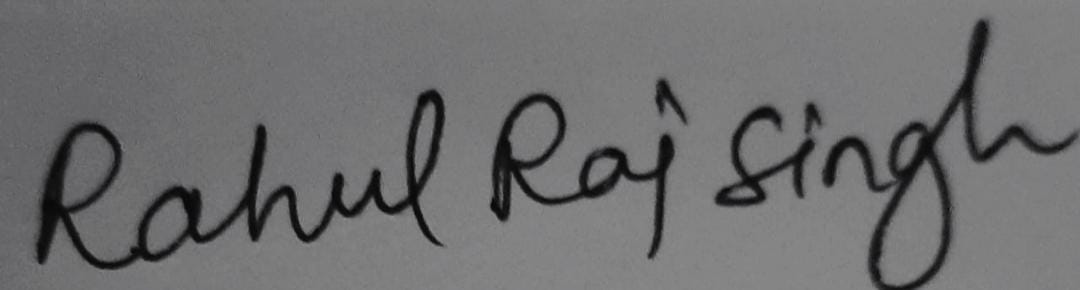 Rahul Raj Singh